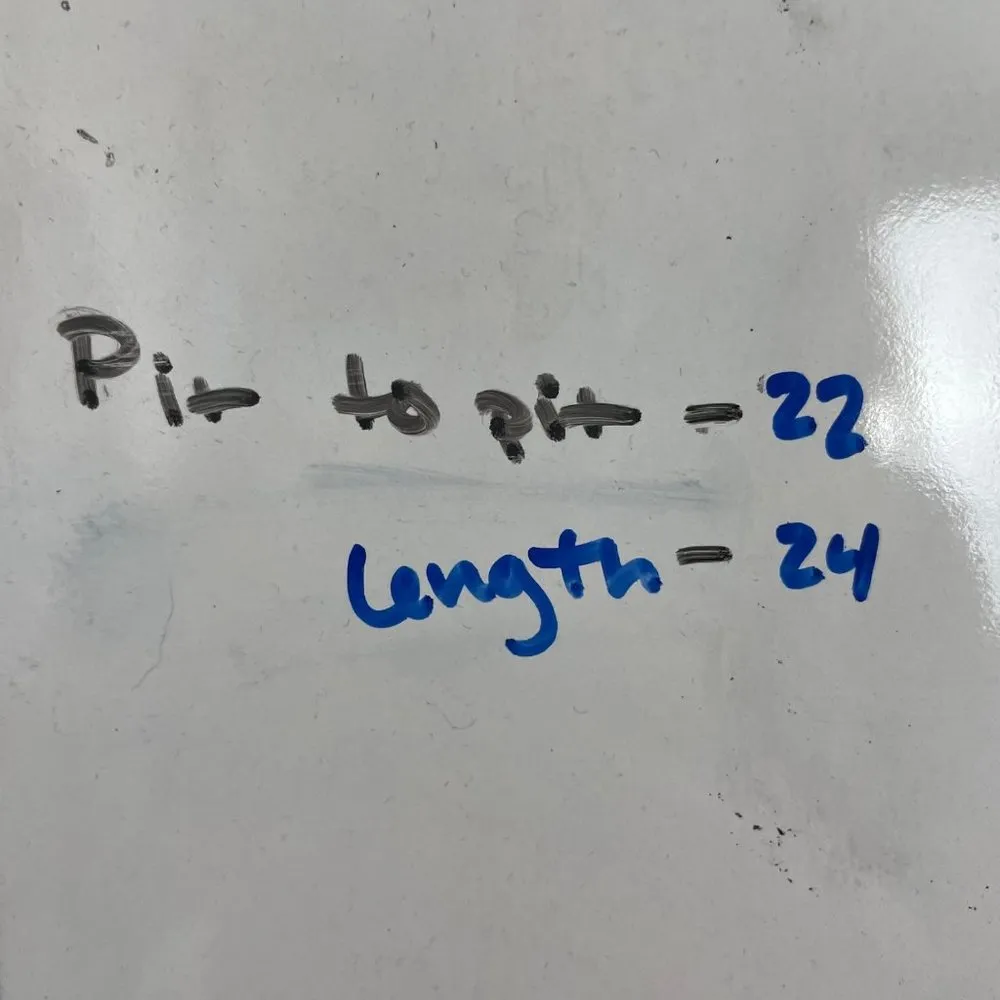 Pit to pit - 22
length - 24